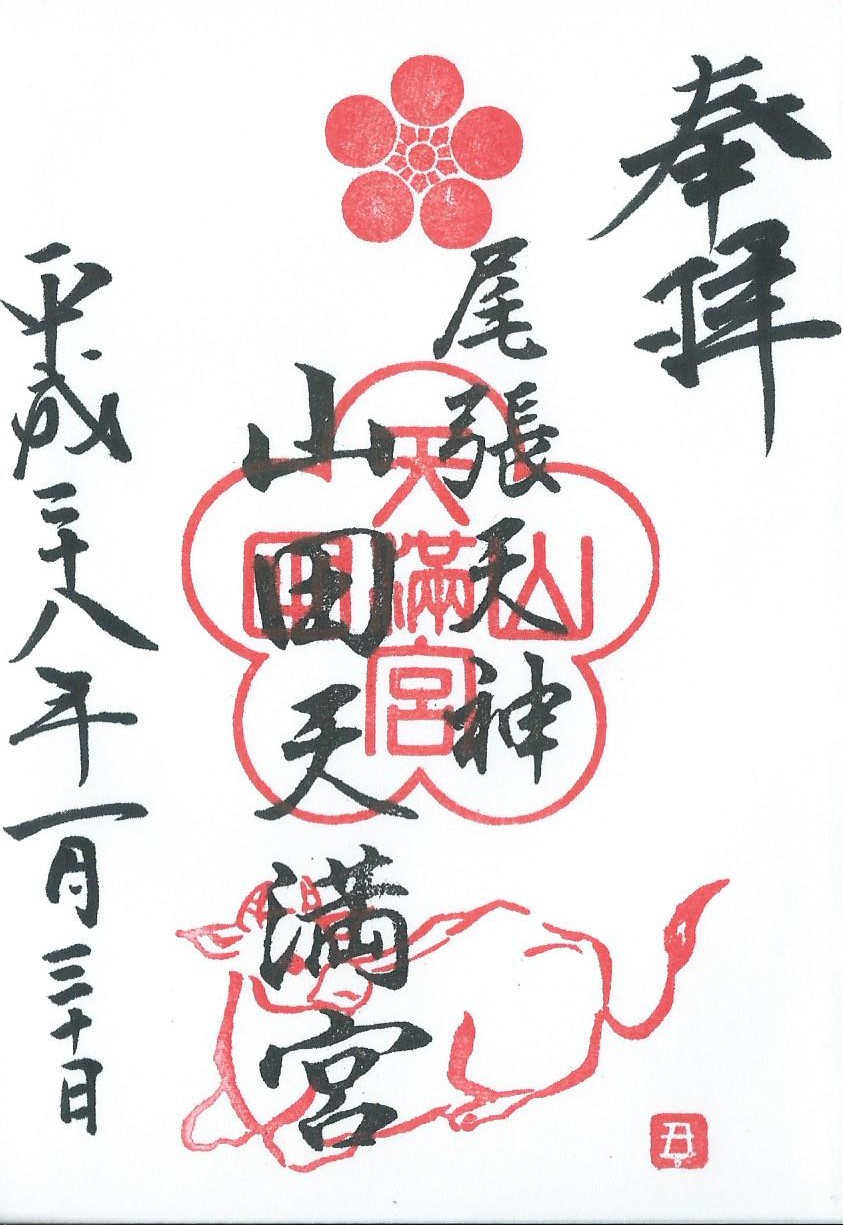 奉拝
尾張天神
山田天満宮
平成二十八年一月三十日
山田天滿宮